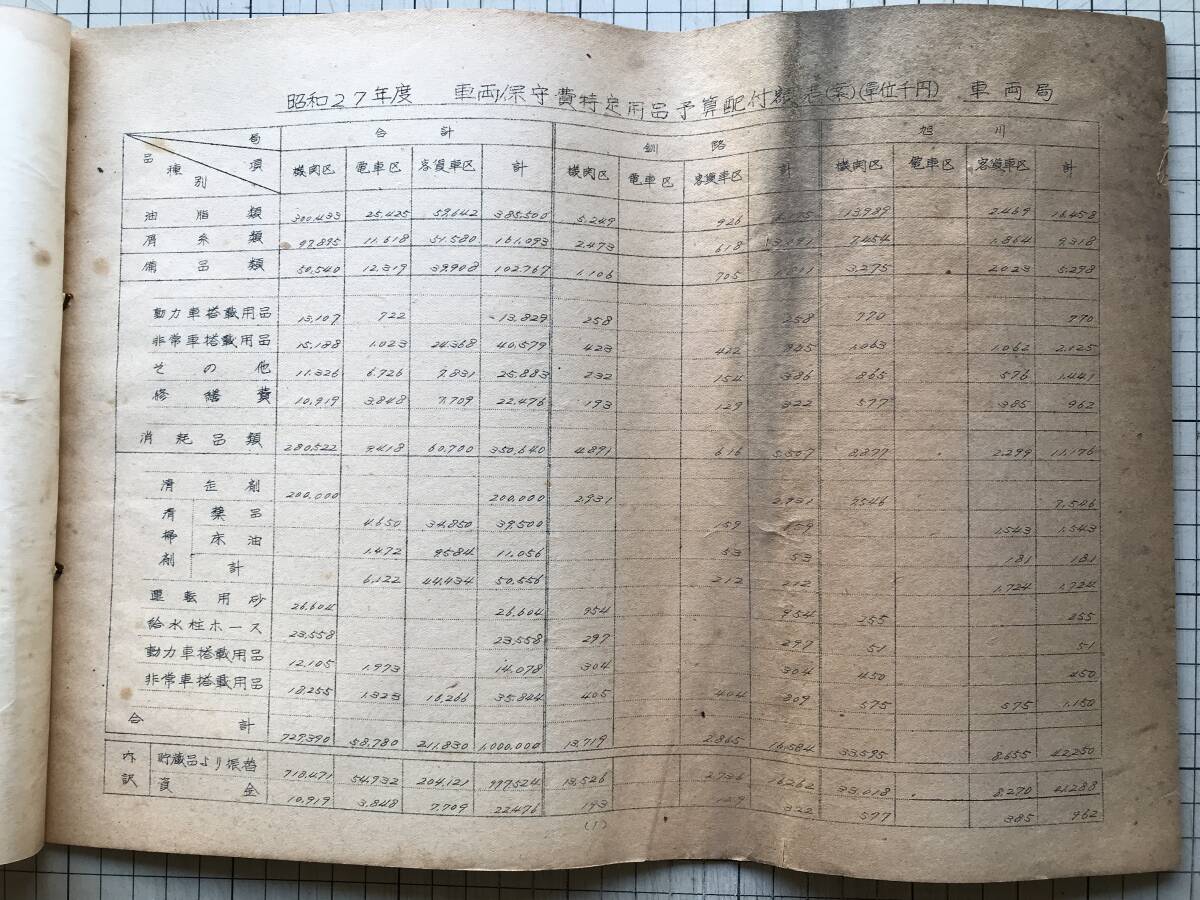 昭和27年度 車両保守費特定用品予算配付額表(案)(単位千円) 車両局
局 合計 釧路 旭川
品種別 項 機関区 電車区 客貨車区 計 機関区 電車区 客貨車区 計 機関区 電車区 客貨車区 計
油脂類 300,433 25,425 59,642 385,500 5,249 926 6,175 13,989 2,469 16,458
屑糸類 97,895 11,618 51,580 161,093 2,473 618 7,454 1,864 9,318
備品類 50,540 12,319 39,908 102,767 1,106 705 3,275 2,023 5,298
動力車搭載用品 13,107 722 13,829 258 258 770 770
非常車搭載用品 15,188 1,023 24,368 40,579 423 422 1,063 1,062 2,125
その他 11,326 6,726 7,831 25,883 232 154 386 865 576 1,441
修繕費 10,919 3,848 7,709 22,476 193 129 322 577 385 962
消耗品類 280,522 9,418 60,700 350,640 4,891 616 5,507 8,877 2,299 11,176
清缶剤 200,000 200,000 2,931 2,931 7,546
清掃剤 薬品 4,650 34,850 39,500 159 159 1,543 1,543
床油 1,472 9,584 11,056 53 53 181 181
計 6,122 44,434 50,556 212 212 1,724 1,724
運転用砂 26,604 26,604 954 954 255 255
給水柱ホース 23,558 23,558 297 297 51 51
動力車搭載用品 12,105 1,973 14,078 304 304 450 450
非常車搭載用品 18,255 1,323 16,266 35,844 405 404 809 575 575 1,150
合計 729,390 58,780 211,830 1,000,000 13,719 2,865 16,584 33,595 8,655 42,250
内訳 貯蔵品より振替 718,471 54,932 204,121 997,524 13,526 2,736 16,262 33,018 8,270 41,288
資金 10,919 3,848 7,709 22,476 193 129 322 577 385 962
(1)